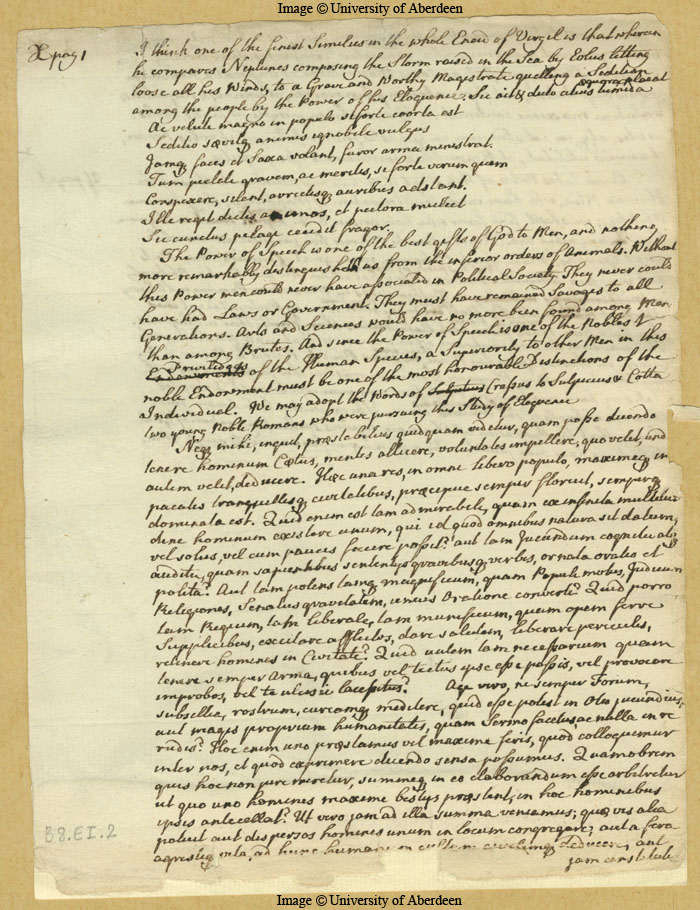 Image © University of Aberdeen
X pag 1
I think one of the finest Similies in the whole Eneid of Virgil is that wherein
he compares Neptunes composing the Storm raised in the Sea by Eolus letting
loose all his Winds, to a Grave and Worthy Magistrate quelling a Sedition
among the people by the Power of his Eloquence. Sic ait & dicto citius tumida
æquora placat
Ac veluti magno in populo si forte coorta est
Seditio sævitq animis ignobile vulgus
Jamq faces et Saxa volant, furor arma ministrat.
Tum pietate gravem, ac meritis, si forte virum quem
Conspexere, silent, arrectisq auribus adstant.
Ille regit dictis animos, et pectora mulcet
Sic cunctus pelagi cecidit fragor.
The Power of Speech is one of the best gifts of God to Men, and nothing
more remarkably distinguisheth us from the inferior orders of Animals. Without
this Power men could never have associated in Political Society. They never could
have had Laws or Government. They must have remained Savages to all
Generations. Arts and Sciences would have no more been found among Men
than among Brutes. And since the Power of Speech is one of the Noblest
Priviledges
Endowments of the Human Species, a Superiority to other Men in this
noble Endowment must be one of the most honourable Distinctions of the
Individual. We may adopt the Words of Crassus to Sulpicius & Cotta
two young Noble Romans who were pursuing this Study of Eloquence
Neq mihi, inquit, præstabilius quidquam videtur, quam posse dicendo
tenere hominum Cœtus, mentes allicere, voluntates impellere, quo velit, unde
autem velit, deducere. Hæc una res, in omni libero populo, maximeq in
pacatis tranquillisq civitatibus, præcipue semper floruit, semperq
dominata est. Quid enim est tam admirabile, quam ex infinita multitu-
dine hominum existere unum, qui id quod omnibus natura sit datum,
vel solus, vel cum paucis facere possit? aut tam jucundum cognitu atq
auditu, quam sapientibus sententijs gravibusq verbis, ornata oratio et
polita? Aut tam potens tamq magnificum, quam Populi motus, Judicum
Religiones, Senatus gravitatem, unius Oratione converti? Quid porro
tam Regium, tam liberale, tam munificum, quam opem ferre
Supplicibus, excitare afflictos, dare salutem, liberare periculis,
retinere homines in Civitate? Quid autem tam necessarium quam
tenere semper Arma, quibus vel tectus ipse esse possis, vel provocare
improbos, vel te ulcisci lacessitus? Age vero, ne semper Forum,
subsellia, rostrum, curiamq meditere, quid esse potest in Otio jucundius,
aut magis proprium humanitatis, quam Sermo facetus ac nulla in re
rudis? Hoc enim uno præstamus vel maxime feris, quod colloquimur
inter nos, et quod exprimere dicendo sensa possumus. Quamobrem
quis hoc non jure miretur, summeq in eo elaborandum esse arbitretur
ut quo uno homines maxime bestijs præstent, in hoc hominibus
ipsis antecellat? Ut vero jam ad illa summa veniamus; quæ vis alia
potuit aut dispersos homines unum in locum congregare, aut a fera
agrestiq vita, ad hunc humanum cultum civilemq deducere, aut
jam constitutis
B8.EI.2
Image © University of Aberdeen